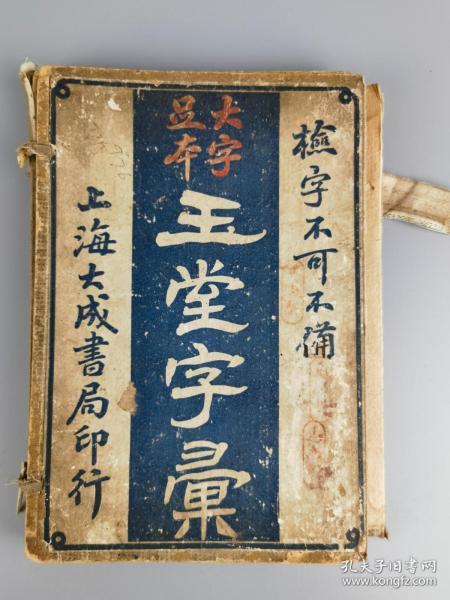 檢字不可不備
大字
足本
玉堂字彙
上海大成書局印行
孔夫子旧书网
www.kongfz.com